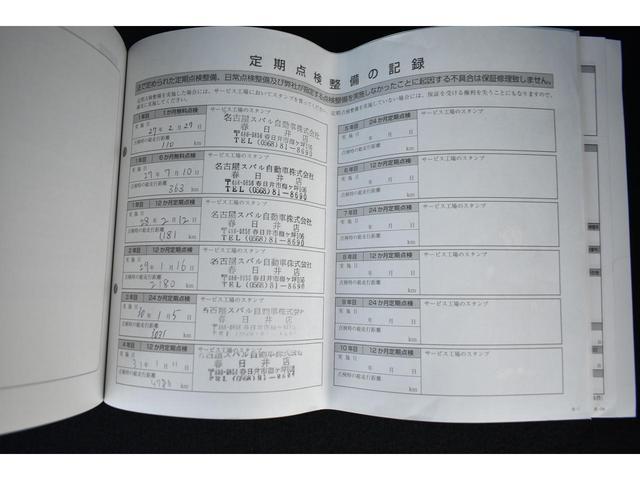 定期点検整備の記録
法で定められた定期点検整備、日常点検整備及び弊社が指定する点検整備を実施しなかったことに起因する不具合は保証修理致しません。
定期点検整備を実施した場合には、サービス工場においてスタンプを貰ってください。
定期点検整備を実施していない場合には、保証を受ける権利を失うことにもなりますので、
実に実施してください。
1年目 1か月無料点検 サービス工場のスタンプ
実施日
27年2月27日
点検時の総走行距離
110 km
名古屋スバル自動車株式会社
春日井店
〒486-0856 春日井市梅ケ坪106
TEL(0568)81-8690
1年目 6か月無料点検 サービス工場のスタンプ
実施日
27年7月10日
点検時の総走行距離
363 km
名古屋スバル自動車株式会社
春日井店
〒486-0856 春日井市梅ケ坪106
TEL(0568)81-8690
1年目 12か月定期点検 サービス工場のスタンプ
実施日
28年2月12日
点検時の総走行距離
1181 km
名古屋スバル自動車株式会社
春日井店
〒486-0856 春日井市梅ケ坪106
TEL(0568)81-8690
2年目 12か月定期点検 サービス工場のスタンプ
実施日
29年1月16日
点検時の総走行距離
2180 km
名古屋スバル自動車株式会社
春日井店
〒486-0856 春日井市梅ケ坪106
TEL(0568)81-8690
3年目 24か月定期点検 サービス工場のスタンプ
実施日
30年1月5日
点検時の総走行距離
km
名古屋スバル自動車株式会社
春日井店
〒486-0856 春日井市梅ケ坪106
TEL(0568)81-8690
4年目 12か月定期点検 サービス工場のスタンプ
実施日
31年1月11日
点検時の総走行距離
km
名古屋スバル自動車株式会社
春日井店
TEL(0568)81-8690
5年目 24か月定期点検 サービス工場のスタンプ
実施日
年 月 日
点検時の総走行距離
km
6年目 12か月定期点検 サービス工場のスタンプ
実施日
年 月 日
点検時の総走行距離
km
7年目 24か月定期点検 サービス工場のスタンプ
実施日
年 月 日
点検時の総走行距離
km
8年目 12か月定期点検 サービス工場のスタンプ
実施日
年 月 日
点検時の総走行距離
km
9年目 24か月定期点検 サービス工場のスタンプ
実施日
年 月 日
点検時の総走行距離
km
10年目 12か月定期点検 サービス工場のスタンプ
実施日
年 月 日
点検時の総走行距離
km